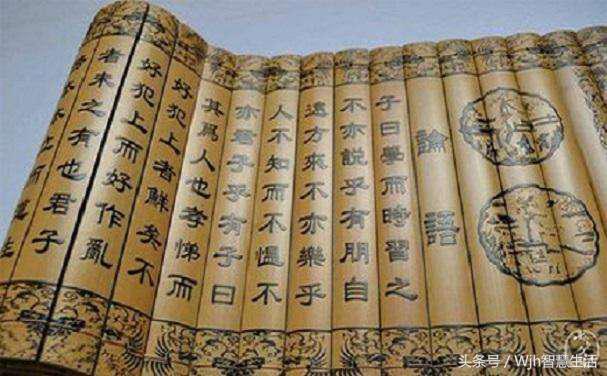 論語
子曰學而時習之
不亦說乎有朋自
遠方來不亦樂乎
人不知而不慍不
亦君子乎有子曰
其爲人也孝悌而
好犯上者鮮矣不
好犯上而好作亂
者未之有也君子
头条号／Wjh智慧生活